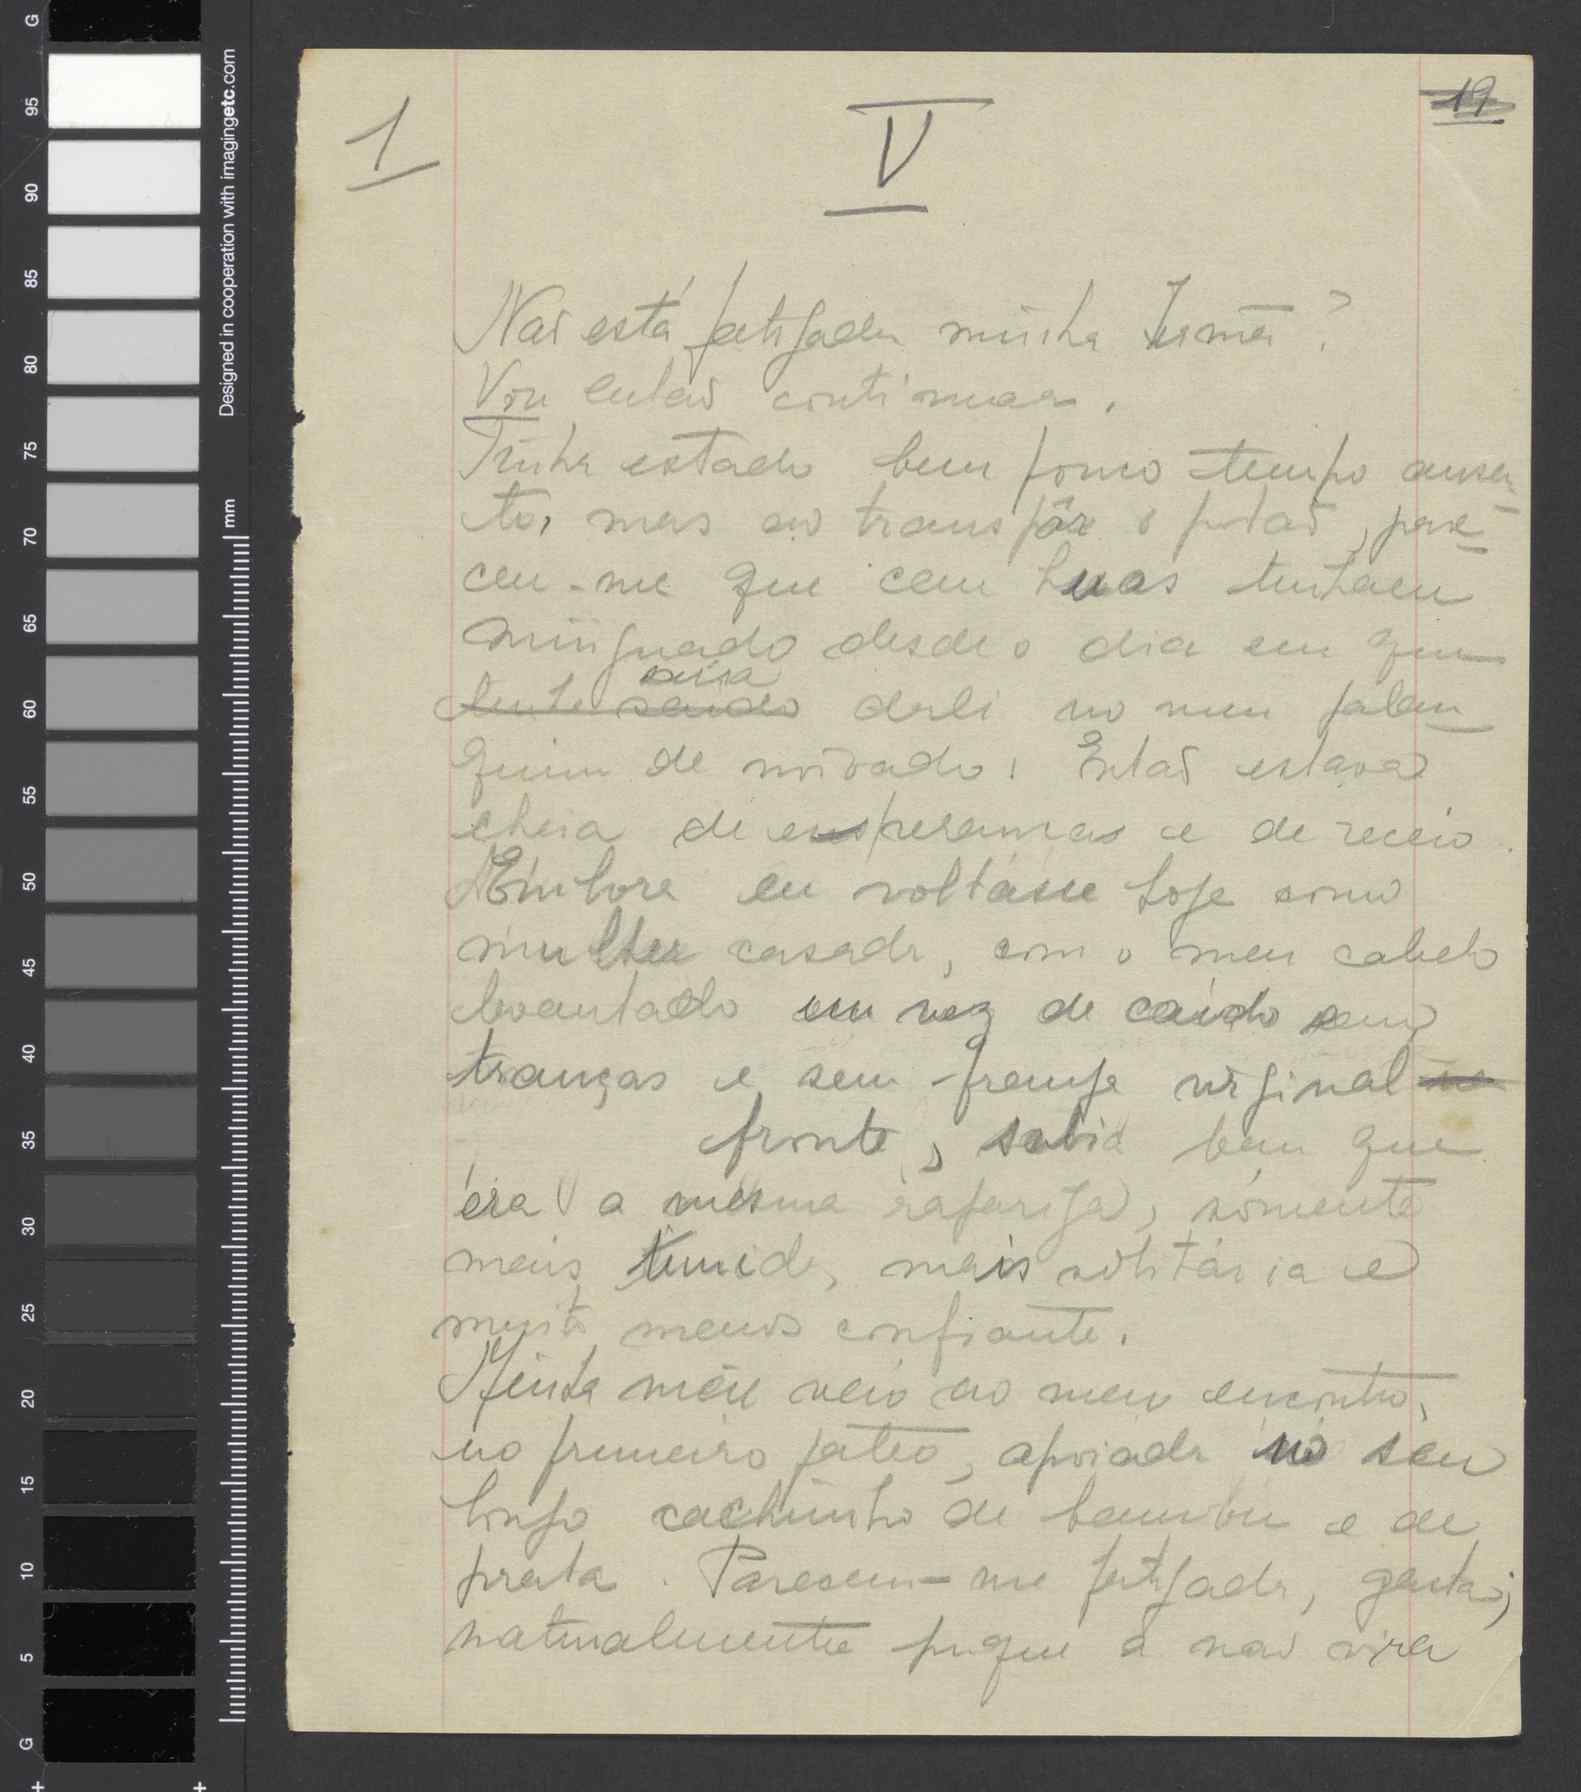 19
1
V
Não está fatigada minha Irmã?
Vou então continuar.
Tinha estado bem pouco tempo ausen-
te, mas ao transpôr o portão, pare-
ceu-me que cem luas tinham
minguado desde o dia em que
saíra
tinha saído dali no meu palan-
quim de noivado! Então estava
cheia de esperanças e de receio.
Embora eu voltásse hoje como
mulher casada, com o meu cabelo
levantado em vez de caído em
tranças e sem franja virginal na
fronte, sabia bem que
éra a mesma rapariga, sómente
mais timida, mais solitária e
muito menos confiante.
Minha mãe veio ao meu encontro,
no primeiro pateo, apoiada no seu
longo cachimbo de bambu e de
prata. Pareceu-me fatigada, gasta;
naturalmente porque a não vira
G
95
90
85
80
75
70
65
60
55
50
45
40
35
30
25
20
15
10
5
G
Designed in cooperation with imagingetc.com
mm